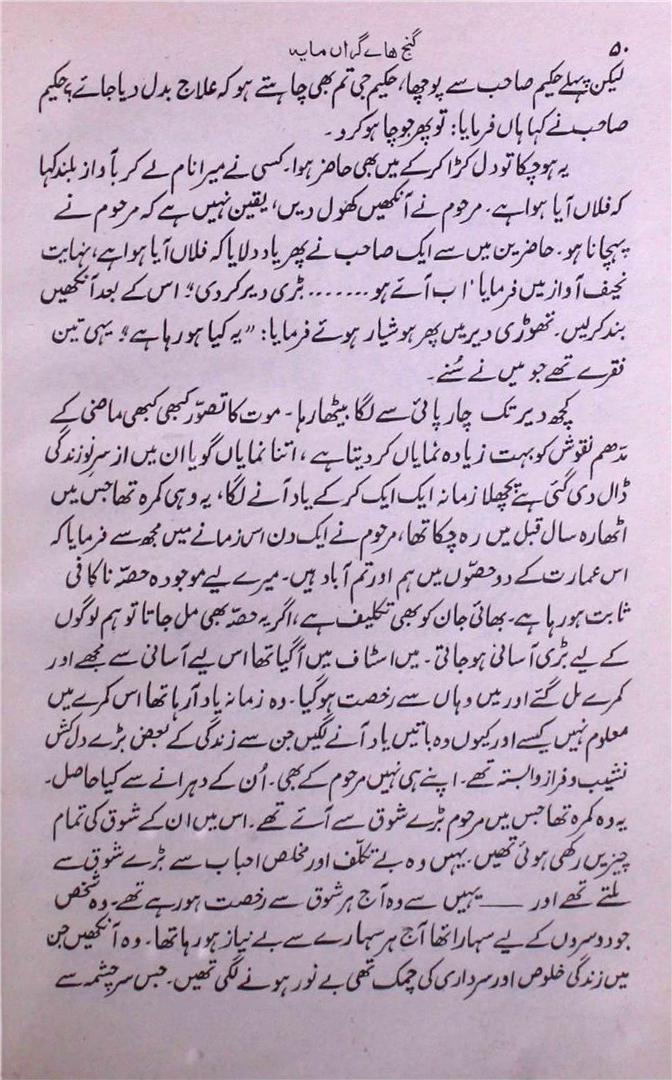 ۵۰
گنج ھائے گراں مایہ
لیکن پہلے حکیم صاحب سے پوچھا، حکیم جی تم بھی چاہتے ہو کہ علاج بدل دیا جائے؟ حکیم
صاحب نے کہا ہاں فرمایا: تو پھر جو چاہو کرو۔
یہ ہو چکا تو دل کڑا کر کے میں بھی حاضر ہوا۔ کسی نے میرا نام لے کر بآواز بلند کہا
کہ فلاں آیا ہوا ہے۔ مرحوم نے آنکھیں کھول دیں، یقین نہیں ہے کہ مرحوم نے
پہچانا ہو۔ حاضرین میں سے ایک صاحب نے پھر یاد دلایا کہ فلاں آیا ہوا ہے، نہایت
نحیف آواز میں فرمایا 'اب آئے ہو ....... بڑی دیر کر دی؟' اس کے بعد آنکھیں
بند کر لیں۔ تھوڑی دیر میں پھر ہوشیار ہوئے فرمایا: "یہ کیا ہو رہا ہے؟" یہی تین
فقرے تھے جو میں نے سُنے۔
کچھ دیر تک چارپائی سے لگا بیٹھا رہا۔ موت کا تصوّر کبھی کبھی ماضی کے
مدّھم نقوش کو بہت زیادہ نمایاں کر دیتا ہے، اتنا نمایاں گویا ان میں از سرِ نو زندگی
ڈال دی گئی ہے پچھلا زمانہ ایک ایک کر کے یاد آنے لگا، یہ وہی کمرہ تھا جس میں
اٹھارہ سال قبل میں رہ چکا تھا، مرحوم نے ایک دن اس زمانے میں مجھ سے فرمایا کہ
اس عمارت کے دو حصّوں میں ہم اور تم آباد ہیں۔ میرے لیے موجودہ حصّہ ناکافی
ثابت ہو رہا ہے۔ بھائی جان کو بھی تکلیف ہے، اگر یہ حصّہ بھی مل جاتا تو ہم لوگوں
کے لیے بڑی آسانی ہو جاتی۔ میں اسٹاف میں آ گیا تھا اس لیے آسانی سے مجھے اور
کمرے مل گئے اور میں وہاں سے رخصت ہو گیا۔ وہ زمانہ یاد آ رہا تھا اس کمرے میں
معلوم نہیں کیسے اور کیوں وہ باتیں یاد آنے لگیں جن سے زندگی کے بعض بڑے دل کش
نشیب و فراز وابستہ تھے۔ اپنے ہی نہیں مرحوم کے بھی۔ اُن کے دہرانے سے کیا حاصل۔
یہ وہ کمرہ تھا جس میں مرحوم بڑے شوق سے آئے تھے۔ اس میں ان کے شوق کی تمام
چیزیں رکھی ہوئی تھیں۔ یہیں وہ بے تکلّف اور مخلص احباب سے بڑے شوق سے
ملتے تھے اور —— یہیں سے وہ آج ہر شوق سے رخصت ہو رہے تھے۔ وہ شخص
جو دوسروں کے لیے سہارا تھا آج ہر سہارے سے بے نیاز ہو رہا تھا۔ وہ آنکھیں جن
میں زندگی خلوص اور سرداری کی چمک تھی بے نور ہونے لگی تھیں۔ جس سرچشمہ سے